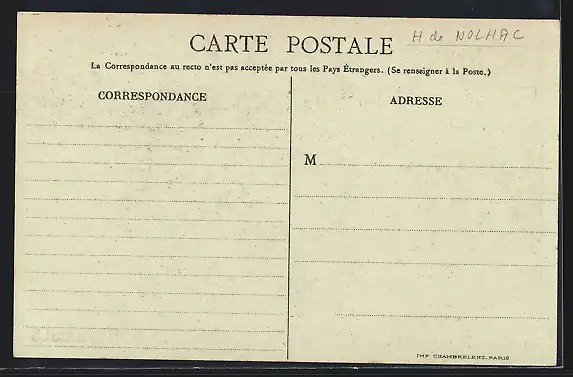 H de NOLHAC
CARTE POSTALE
La Correspondance au recto n'est pas acceptée par tous les Pays Étrangers. (Se renseigner à la Poste.)
CORRESPONDANCE
ADRESSE
M
IMP. CHAMBRELENT, PARIS